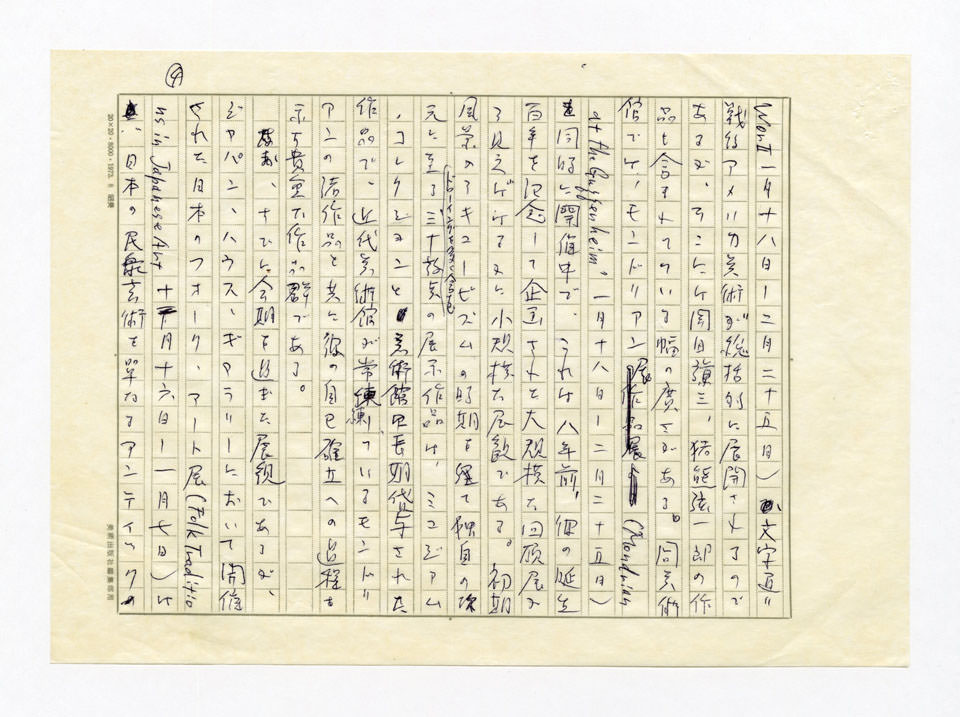 ④
War II 一月十八日ー二月二十五日）文字通り
戦後アメリカ美術が総括的に展開されるので
あるが、そこには岡田謙三、猪熊弦一郎の作
品も含まれている幅の廣さがある。同美術
館では、モンドリアン展（Mondrian
at the Guggenheim. 一月十八日ー二月二十五日）
も同時に開催中で、これは八年前、彼の誕生
百年を記念して企画された大規模な回顧展み
る見えがけるに小規模な展観である。初期
風景のアキュービズムの時期を経て独自の次
元に至る ドローイングを多く含む 三十数点の展示作品は、ミュジアム
・コレクションと美術館に長期貸与された
作品で、近代美術館が常陳しているモンドリ
アンの諸作品と共に彼の自己確立への過程を
示す貴重な作品群である。
なお、すでに会期を過ぎた展観であるが、
ジァパン、ハウス、ギァラリーにおいて開催
された日本のフォーク、アート展（Folk Traditio
ns in Japanese Art 十月十六日ー一月七日）は
日本の民衆芸術を単なるアンティックの
20×20・8000・1973. 8 昭東
美術出版社編集部用